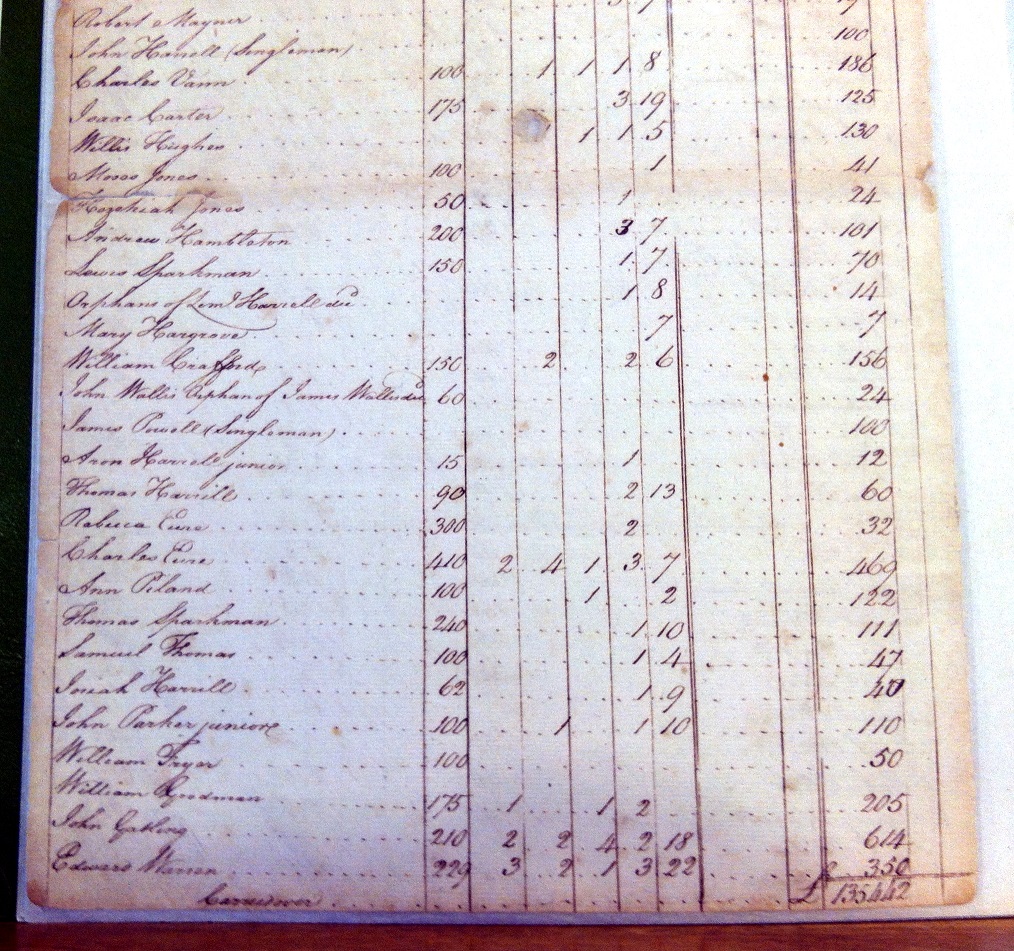 Robert Rayner 19
John Harrell (Singleman) 100
Charles Vann 100 1 1 1 8 186
Isaac Carter 175 3 19 125
Willis Hughes 1 1 5 130
Moses Jones 100 1 41
Hezekiah Jones 50 1 24
Andrew Hambleton 200 3 7 101
Lewis Sparkman 150 1 7 70
Orphans of Harrell decd 1 8 14
Mary Hargrove 7 7
William Crafford 150 2 2 6 156
John Wallis Orphan of James Wallis decd 60 24
James Powell (Singleman) 100
Aron Harrell junior 15 1 12
Thomas Harrill 90 2 13 60
Rebecca Eure 300 2 32
Charles Eure 410 2 4 1 3 7 469
Ann Piland 100 1 2 122
Thomas Sparkman 240 1 10 111
Samuel Thomas 100 1 4 47
Josiah Harrill 62 1 9 40
John Parker juniore 100 1 1 10 110
William Fryer 100 50
William Goodman 175 1 1 2 205
John Gatling 210 2 2 4 2 18 614
Edward Warren 229 3 2 1 3 22 350
Carried over £ 135442